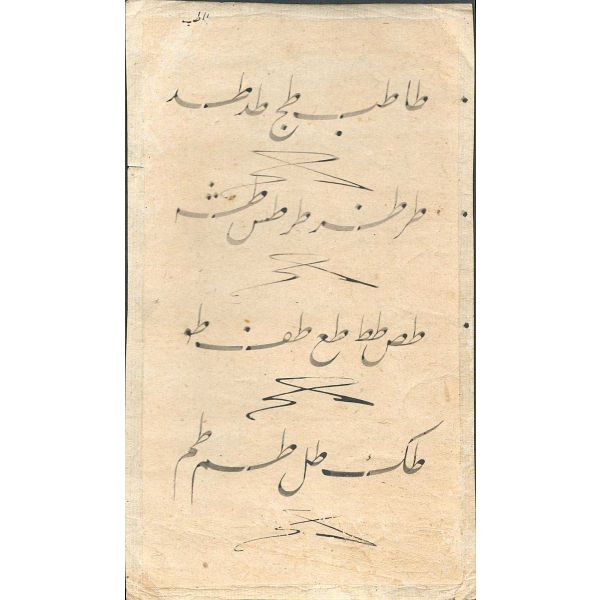 طا طب طج طد طد
طر طر طس
طص طط طع طف طو
طک طل طم طم